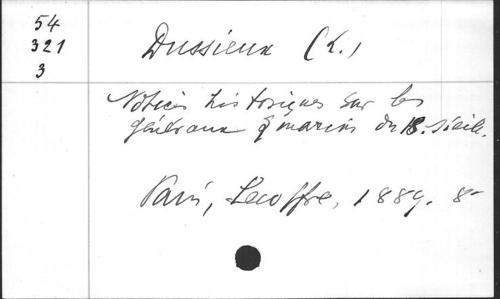 54
321
3
Dussieux (L.)
Notices historiques sur les
généraux & marins du 18. siècle.
Paris, Lecoffre, 1889. 8-